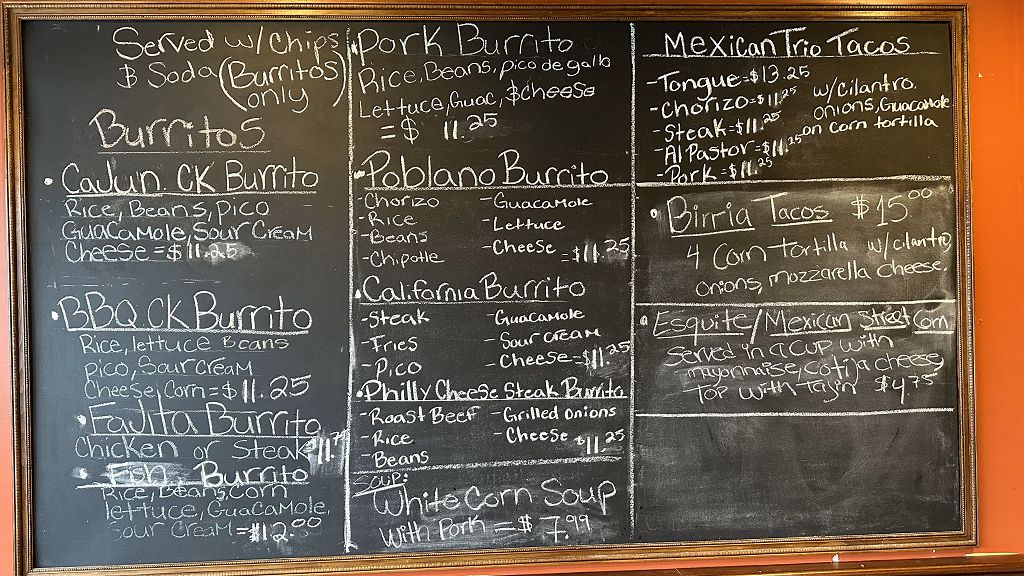 Served w/ Chips
& Soda (Burritos
only)
Burritos
• Cajun CK Burrito
Rice, Beans, pico
Guacamole, Sour Cream
Cheese = $11.25
• BBQ CK Burrito
Rice, lettuce Beans
pico, Sour Cream
Cheese, Corn = $11.25
• Fajita Burrito
Chicken or Steak
• Fish Burrito
Rice, Beans, Corn
lettuce, Guacamole,
Sour Cream = $12.00
• Pork Burrito
Rice, Beans, pico de gallo
Lettuce, Guac, & cheese
= $ 11.25
• Poblano Burrito
- Chorizo - Guacamole
- Rice - Lettuce
- Beans - Cheese = $11.25
- Chipotle
• California Burrito
- Steak - Guacamole
- Fries - Sour cream
- Pico - Cheese = $11.25
• Philly Cheese Steak Burrito
- Roast Beef - Grilled onions
- Rice - Cheese $11.25
- Beans
Soup:
White Corn Soup
With Pork = $7.99
Mexican Trio Tacos
- Tongue = $13.25
- Chorizo = $11.25 w/ cilantro,
onions, Guacamole
- Steak = $11.25 on corn tortilla
- Al Pastor = $11.25
- Pork = $11.25
• Birria Tacos $15.00
4 Corn tortilla w/ cilantro
onions, mozzarella cheese.
• Esquite / Mexican Street Corn
Served in a cup with
mayonnaise, cotija cheese
Top with tajin $4.75